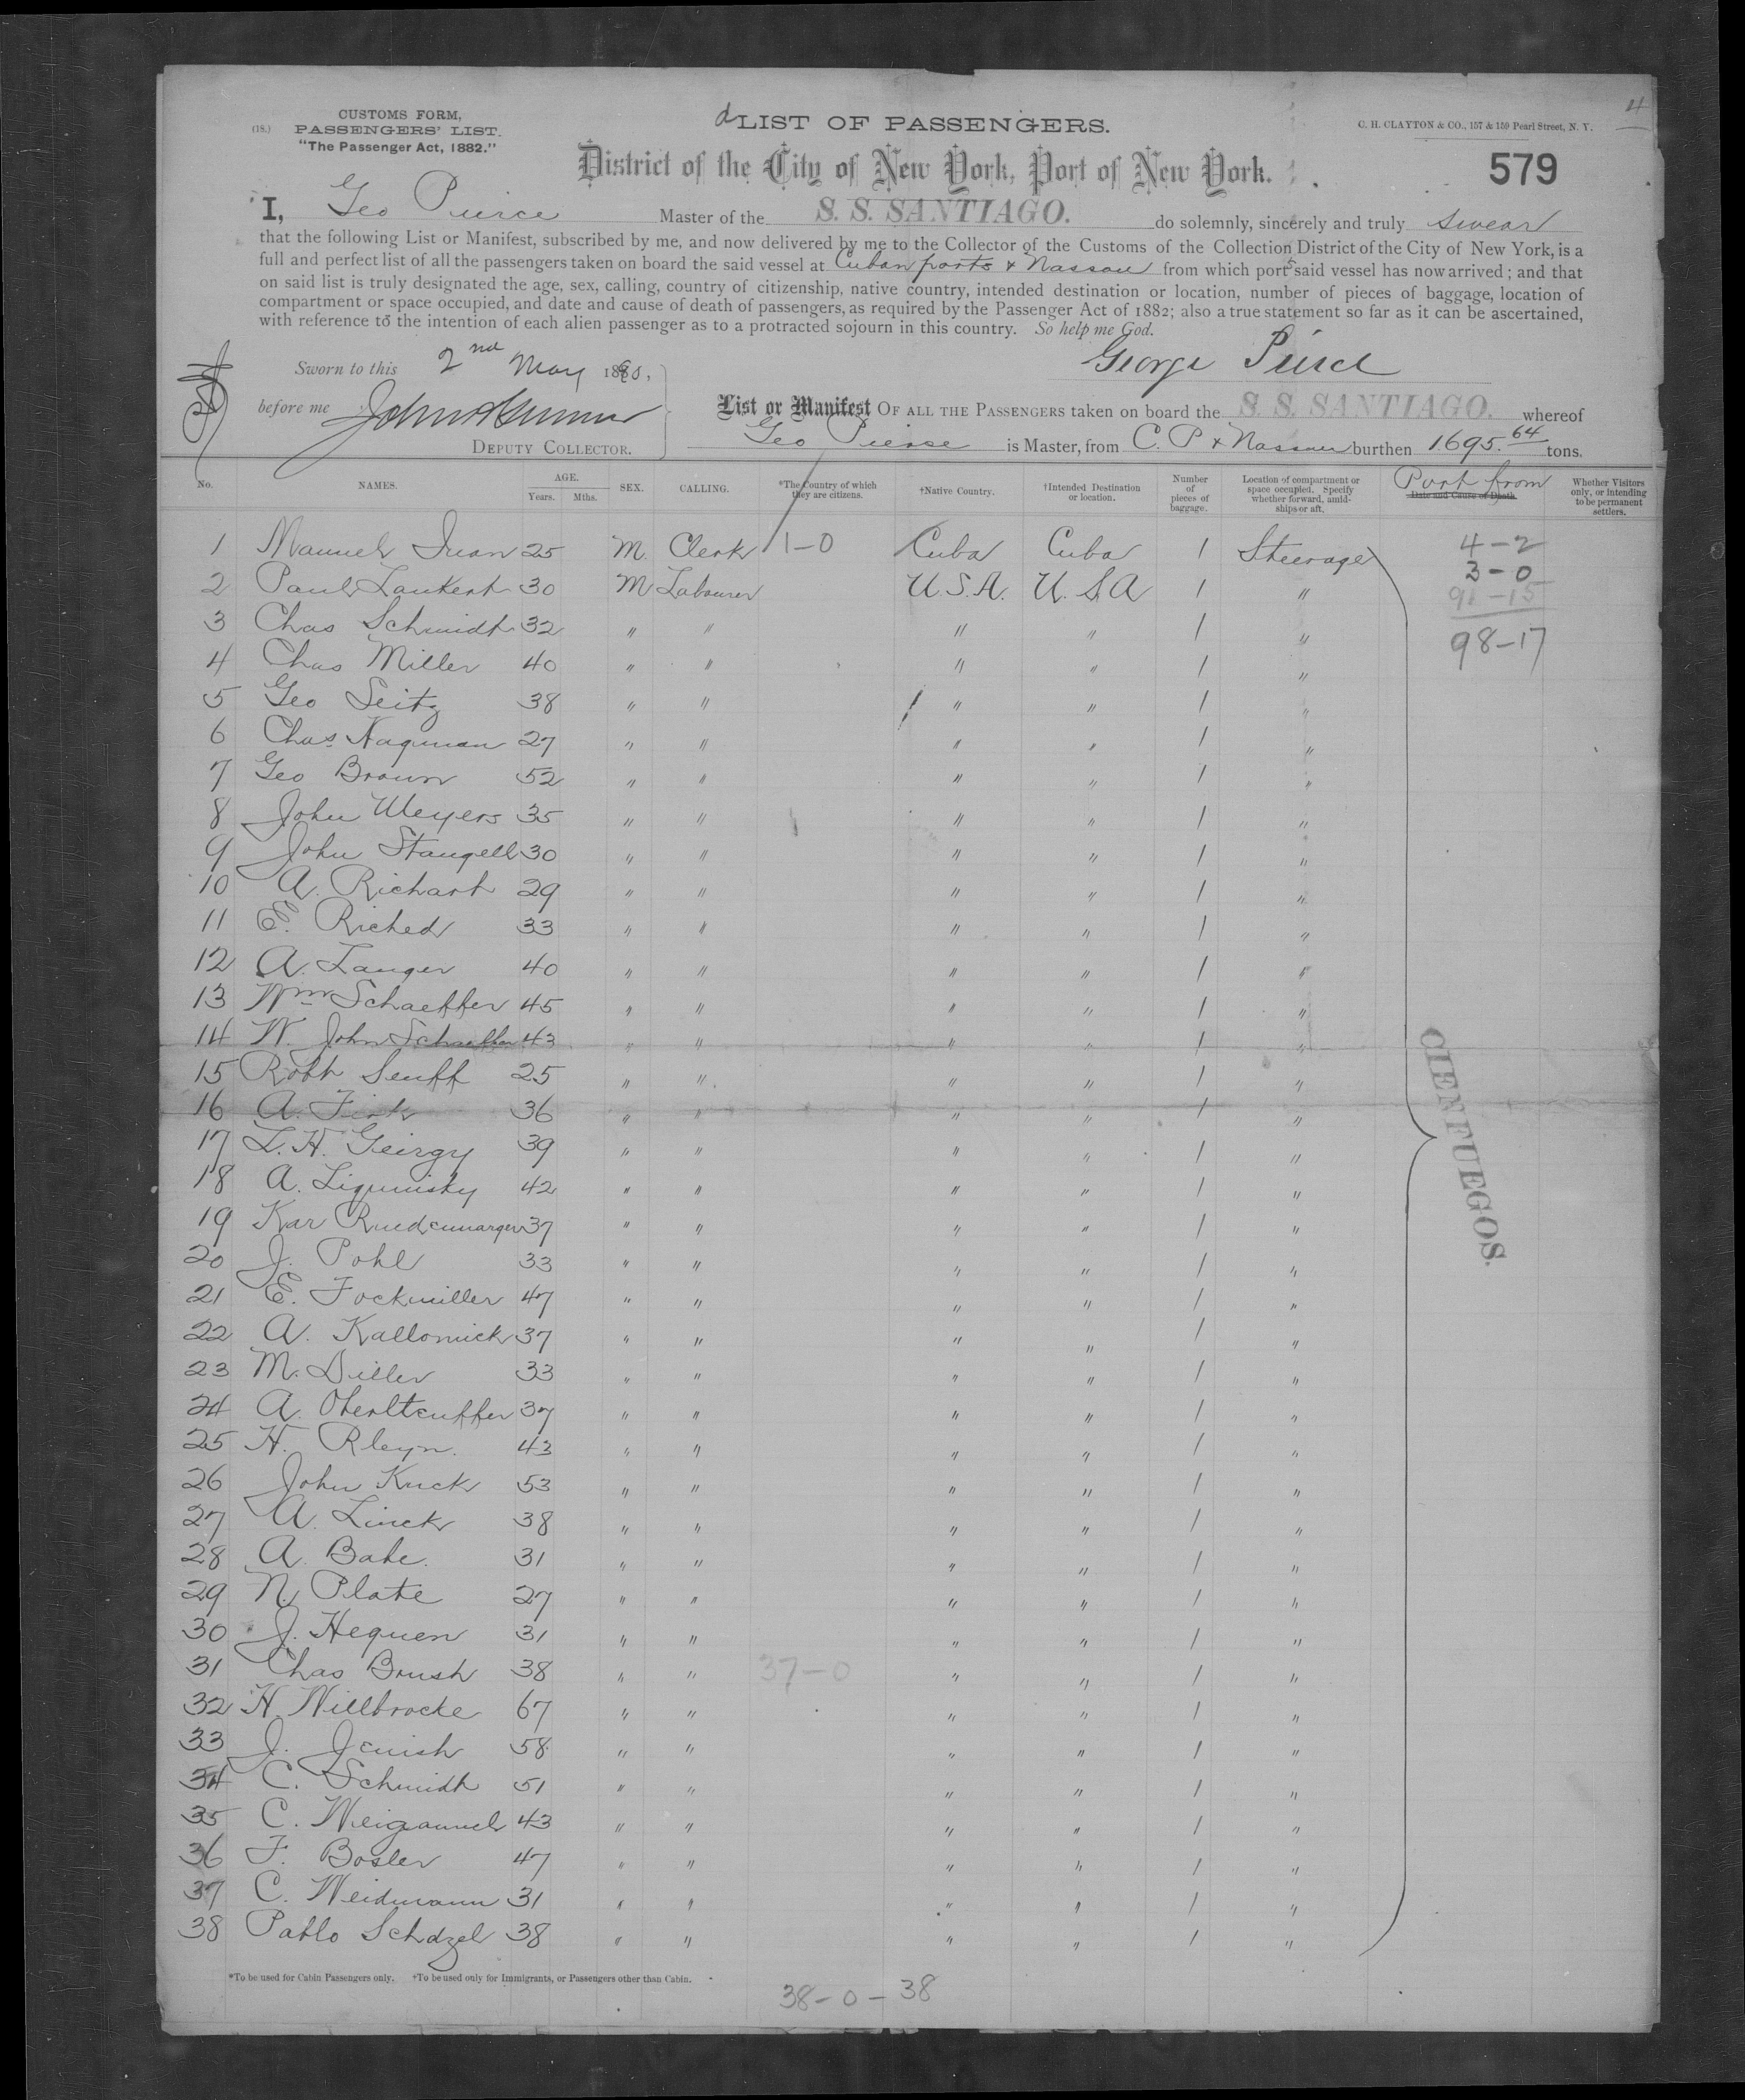 4
CUSTOMS FORM,
(18.) PASSENGERS' LIST.
"The Passenger Act, 1882."
LIST OF PASSENGERS.
C. H. CLAYTON & CO., 157 & 159 Pearl Street, N. Y.
District of the City of New York, Port of New York.
579
I, Geo Pierce Master of the S. S. SANTIAGO. do solemnly, sincerely and truly swear
that the following List or Manifest, subscribed by me, and now delivered by me to the Collector of the Customs of the Collection District of the City of New York, is a
full and perfect list of all the passengers taken on board the said vessel at Cuban ports & Nassau from which ports said vessel has now arrived; and that
on said list is truly designated the age, sex, calling, country of citizenship, native country, intended destination or location, number of pieces of baggage, location of
compartment or space occupied, and date and cause of death of passengers, as required by the Passenger Act of 1882; also a true statement so far as it can be ascertained,
with reference to the intention of each alien passenger as to a protracted sojourn in this country. So help me God.
Sworn to this 2nd May 1890,
George Pierce
before me
List or Manifest OF ALL THE PASSENGERS taken on board the S. S. SANTIAGO. whereof
DEPUTY COLLECTOR.
Geo Pierce is Master, from C. P & Nassau burthen 1695.64 tons.
No. NAMES. AGE. Years. Mths. SEX. CALLING. *The Country of which they are citizens. †Native Country. †Intended Destination or location. Number of pieces of baggage. Location of compartment or space occupied. Specify whether forward, amid-ships or aft. Date and Cause of Death. Port from Whether Visitors only, or intending to be permanent settlers.
1 Manuel Juan 25 M. Clerk 1-0 Cuba Cuba 1 Steerage 4-2
3-0
2 Paul Lankert 30 M Labourer U.S.A. U.S.A 1 " 91-15
3 Chas Schmidt 32 " " " " 1 " 98-17
4 Chas Miller 40 " " " " 1 "
5 Geo Seitz 38 " " " " 1 "
6 Chas Hagman 27 " " " " 1 "
7 Geo Braun 52 " " " " 1 "
8 John Meyers 35 " " " " 1 "
9 John Stangell 30 " " " " 1 "
10 A. Richart 29 " " " " 1 "
11 E. Riched 33 " " " " 1 "
12 A. Langer 40 " " " " 1 "
13 Wm Schaeffer 45 " " " " 1 "
14 W. John 43 " " " " 1 "
15 Robt Senff 25 " " " " 1 "
16 A. Fink 36 " " " " 1 "
17 L. H. Geirgy 39 " " " " 1 "
18 A. Ligminsky 42 " " " " 1 "
19 Kar 37 " " " " 1 "
CIENFUEGOS.
20 J. Pohl 33 " " " " 1 "
21 E. Fockmiller 47 " " " " 1 "
22 A. Kallomick 37 " " " " 1 "
23 M. Diller 33 " " " " 1 "
24 A. Oberlteuffer 37 " " " " 1 "
25 H. Rleyn. 43 " " " " 1 "
26 John Kuck 53 " " " " 1 "
27 A. Linck 38 " " " " 1 "
28 A. Bahe. 31 " " " " 1 "
29 N. Plate 27 " " " " 1 "
30 J. Hequen 31 " " " " 1 "
31 Chas Brush 38 " " 37-0 " " 1 "
32 H. Willbrocke 67 " " " " 1 "
33 J. Jenish 58 " " " " 1 "
34 C. Schmidt 51 " " " " 1 "
35 C. 43 " " " " 1 "
36 F. Bosler 47 " " " " 1 "
37 C. Weidmann 31 " " " " 1 "
38 Pablo Schazel 38 " " " " 1 "
*To be used for Cabin Passengers only. †To be used only for Immigrants, or Passengers other than Cabin.
38-0-38